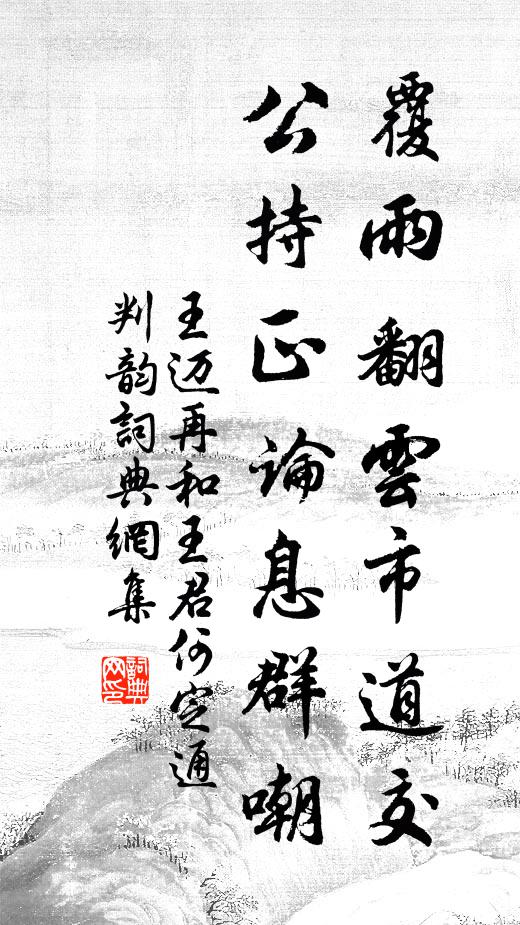 覆雨翻雲市道交
公持正论息群嘲
王迈再和王君何定通
判韵詞典網集
詞典
网印